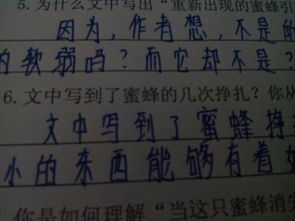 5.为什么文中写出“重新出现的蜜蜂引
因为,作者想,不是的
的软弱吗?而它却不是?
6.文中写到了蜜蜂的几次挣扎?你从
文中写到了蜜蜂挣
小的东西能够有着如
你是如何理解“当这只蜜蜂消失